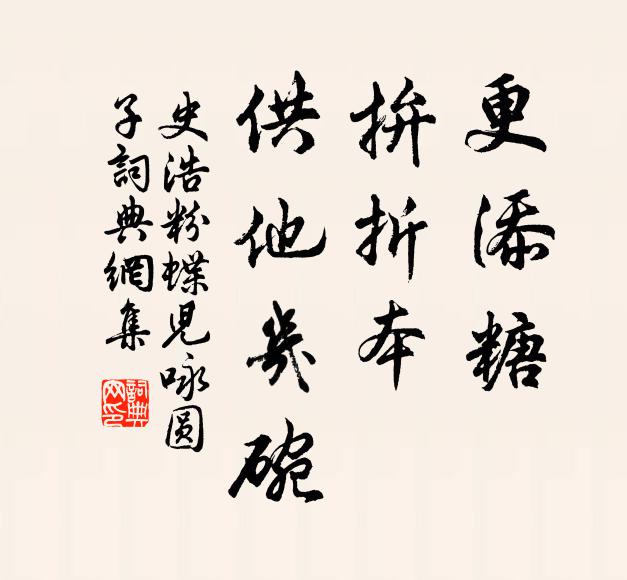 更添糖
拚折本
供他幾碗
史浩粉蝶児咏圆
子詞典網集
詞典网印